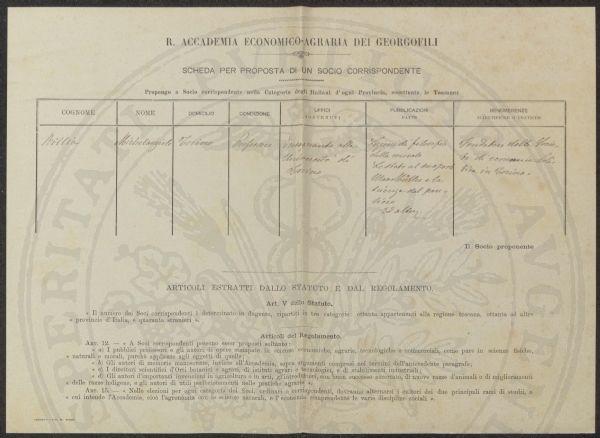 R. ACCADEMIA ECONOMICO-AGRARIA DEI GEORGOFILI
SCHEDA PER PROPOSTA DI UN SOCIO CORRISPONDENTE
Propongo a Socio corrispondente nella Categoria degli Italiani d'ogni Provincia, eccettuate le Toscane
COGNOME NOME DOMICILIO CONDIZIONE UFFICI SOSTENUTI PUBBLICAZIONI FATTE BENEMERENZE SCIENTIFICHE O PRATICHE
Michelangelo Torino Professore
Insegnante alla
Università di
Torino
della morale
ed altre
in Torino
Il Socio proponente
ARTICOLI ESTRATTI DALLO STATUTO E DAL REGOLAMENTO.
Art. V dello Statuto.
« Il numero dei Soci corrispondenti è determinato in dugento, ripartiti in tre categorie: ottanta appartenenti alla regione toscana, ottanta ad altre
« provincie d'Italia, e quaranta stranieri ».
Articoli del Regolamento.
ART. 12. — « A Soci corrispondenti possono esser proposti soltanto:
« a) I pubblici professori e gli autori di opere stampate in scienze economiche, agrarie, tecnologiche e commerciali, come pure in scienze fisiche,
« naturali e morali, purchè applicate agli oggetti di quelle;
« b) Gli autori di memorie manoscritte, inviate all'Accademia, sopra argomenti compresi nei termini dell'antecedente paragrafo;
« c) I direttori scientifici d'Orti botanici e agrari, di istituti agrari e tecnologici, e di stabilimenti industriali;
« d) Gli autori d'importanti invenzioni in agricoltura e in arti, gl'introduttori, con buon successo accertato, di nuove razze d'animali o di miglioramenti
« delle razze indigene, e gli autori di utili perfezionamenti nelle pratiche agrarie ».
ART. 15. — « Nelle elezioni per ogni categoria dei Soci, ordinari o corrispondenti, dovranno alternarsi i cultori dei due principali rami di studii, a
« cui intende l'Accademia, cioè l'agronomia con le scienze naturali, e l'economia comprendente le varie discipline sociali ».